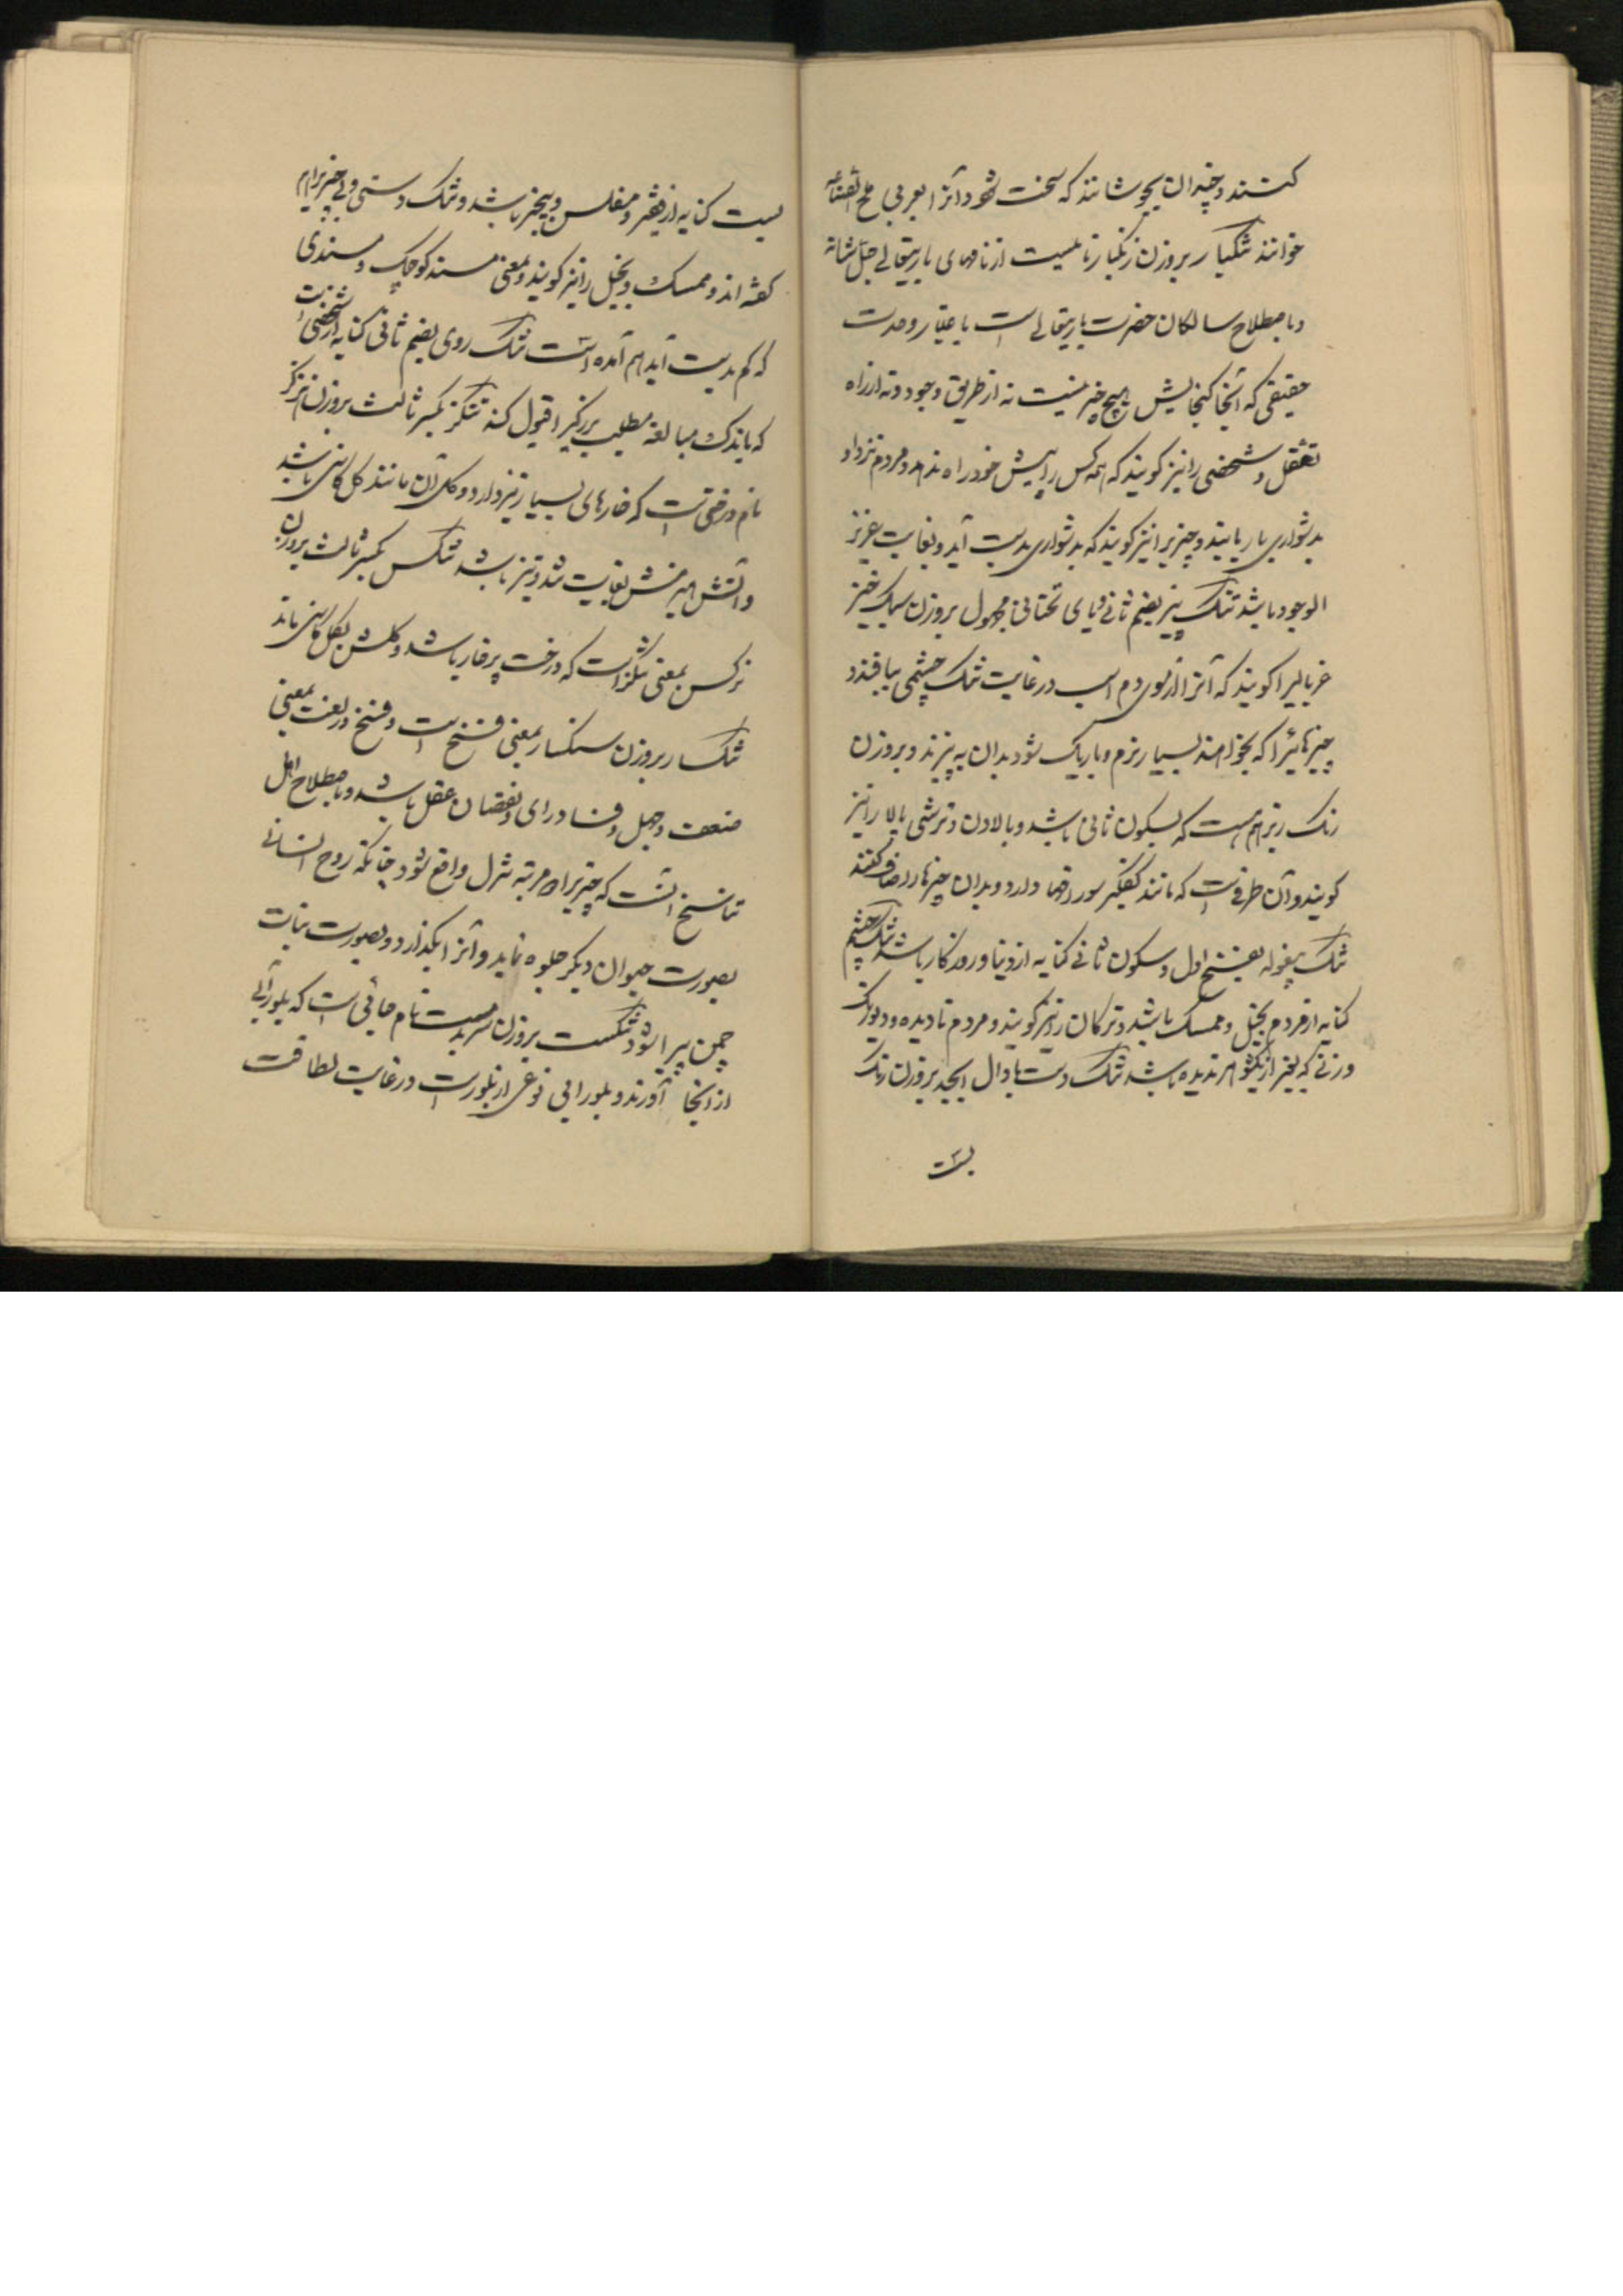 کنند و چندان بجوشانند که سخت شود و آنرا بعربی ملح الصناعه
خوانند تنکبار بروزن زنکبار نامیست از نامهای باریتعالی جل شانه
و باصطلاح سالکان حضرت باریتعالی است باعتبار وحدت
حقیقی که آنجا کنجایش هیچ چیز نیست نه از طریق وجود و نه از راه
تعقل و شخصی را نیز کویند که همه کس را پیش خود راه ندهد و مردم نزد او
بدشواری بار یابند و چیزیرا نیز کویند که بدشواری بدست آید و بغایت عزیز
الوجود باشد تنک بیز بضم ثانی و یای تحتانی مجهول بروزن سبک خیز
غربالیرا کویند که آنرا از موی دم اسب در غایت تنک چشمی ببافند و
چیزهائیرا که بخواهند بسیار نرم و باریک شود بدان به بیزند و بروزن
رنک ریز هم هست که بسکون ثانی باشد و بالادن و ترشی پالا را نیز
کویند و آن ظرفی است که مانند کفکیر سوراخها دارد و بدان چیزها را صاف کنند
تنک بیغوله بفتح اول و سکون ثانی کنایه از دنیا و روزکار باشد تنک چشم
کنایه از مردم بخیل و ممسک باشد و ترکان را نیز کویند و مردم نادیده و دیورنک
و زنی که بغیر از یکشوهر ندیده باشد تنک دست با دال ابجد بروزن رنک
بست
بست کنایه از فقیر و مفلس و بیچیز باشد و تنک دستی و بی چیزی را هم
کفته اند و ممسک و بخیل را نیز کویند و بمعنی مسند کوچک و مسندی
که کم بدست آید هم آمده است تنک روی بضم ثانی کنایه از شخصی است
که باندک مبالغه مطلب بزرکی را قبول کند تنکز بکسر ثالث بروزن هرکز
نام درختی است که خارهای بسیار تیز دارد و کل آن مانند کل کاسنی باشد
و آتش هیزمش بغایت تند و تیز باشد تنکس بکسر ثالث بروزن
نرکس بمعنی تنکز است که درخت پرخار باشد و کلش بکل کاسنی ماند
تنکسار بروزن سنکسار بمعنی فسخ است و فسخ در لغت بمعنی
ضعف و جهل و فساد رای و نقصان عقل باشد و باصطلاح اهل
تناسخ آنست که چیزیرا مرتبه تنزل واقع شود چنانکه روح انسانی
بصورت حیوان دیکر جلوه نماید و آنرا بکذارد و بصورت نبات
چمن پیرا شود تنکست بروزن سربست نام جائی است که بلورآبی
از آنجا آورند و بلور آبی نوعی از بلورست در غایت لطافت